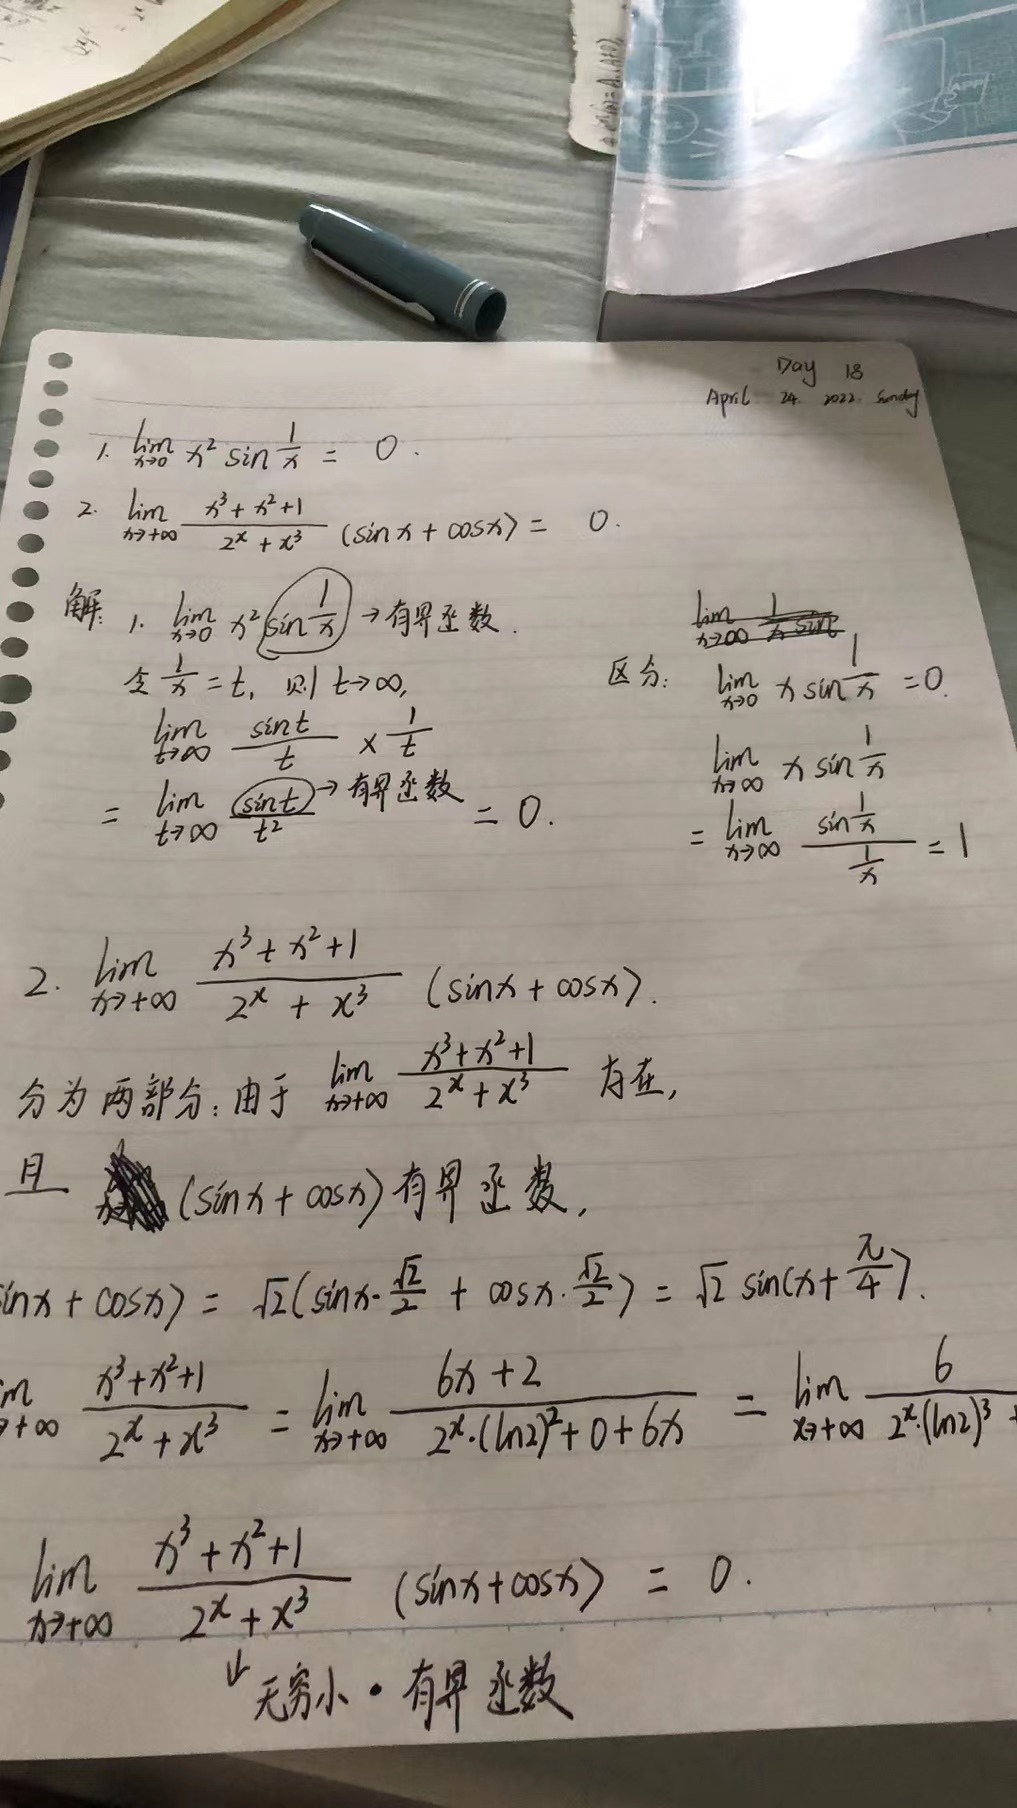 Day 18
April 24. 2022. Sunday
1. lim x→0 x² sin 1/x = 0.
2. lim x→+∞ (x³+x²+1)/(2ˣ+x³) (sinx+cosx) = 0.
解: 1. lim x→0 x² sin 1/x → 有界函数.
令 1/x = t, 则 t→∞,
lim t→∞ sint/t × 1/t
= lim t→∞ sint/t² → 有界函数 = 0.
区分: lim x→0 x sin 1/x = 0.
lim x→∞ x sin 1/x
= lim x→∞ (sin 1/x)/(1/x) = 1
2. lim x→+∞ (x³+x²+1)/(2ˣ+x³) (sinx+cosx).
分为两部分: 由于 lim x→+∞ (x³+x²+1)/(2ˣ+x³) 存在,
且 (sinx+cosx) 有界函数,
inx+cosx) = √2(sinx·√2/2 + cosx·√2/2) = √2 sin(x+π/4).
m →+∞ (x³+x²+1)/(2ˣ+x³) = lim x→+∞ (6x+2)/(2ˣ·(ln2)²+0+6x) = lim x→+∞ 6/(2ˣ·(ln2)³+
lim x→+∞ (x³+x²+1)/(2ˣ+x³) (sinx+cosx) = 0.
↓ 无穷小 · 有界函数